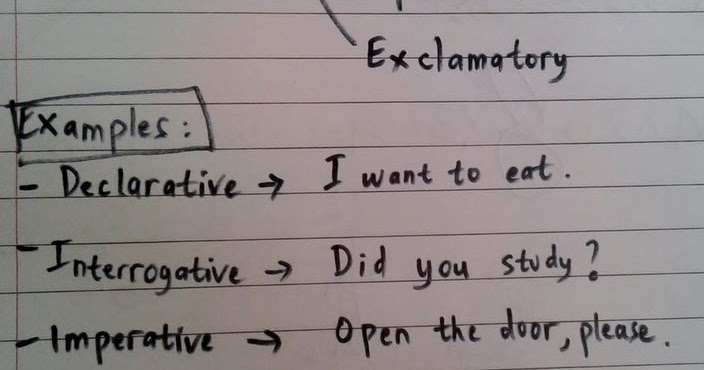 Exclamatory
Examples:
- Declarative → I want to eat.
- Interrogative → Did you study?
- Imperative → Open the door, please.